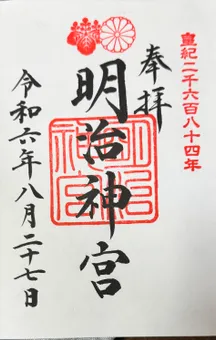 皇紀二千六百八十四年
奉拝
明治神宮
明治神宮
令和六年八月二十七日